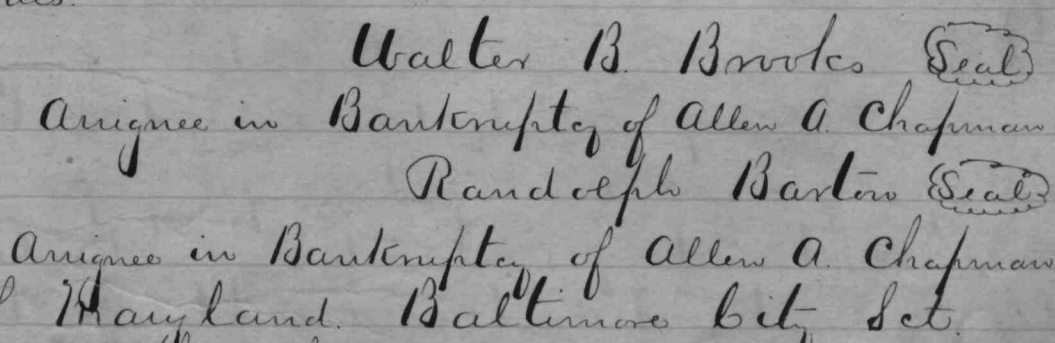 Walter B. Brooks Seal
Assignee in Bankruptcy of Allen A. Chapman
Randolph Barton Seal
Assignee in Bankruptcy of Allen A. Chapman
Maryland. Baltimore City Sct.